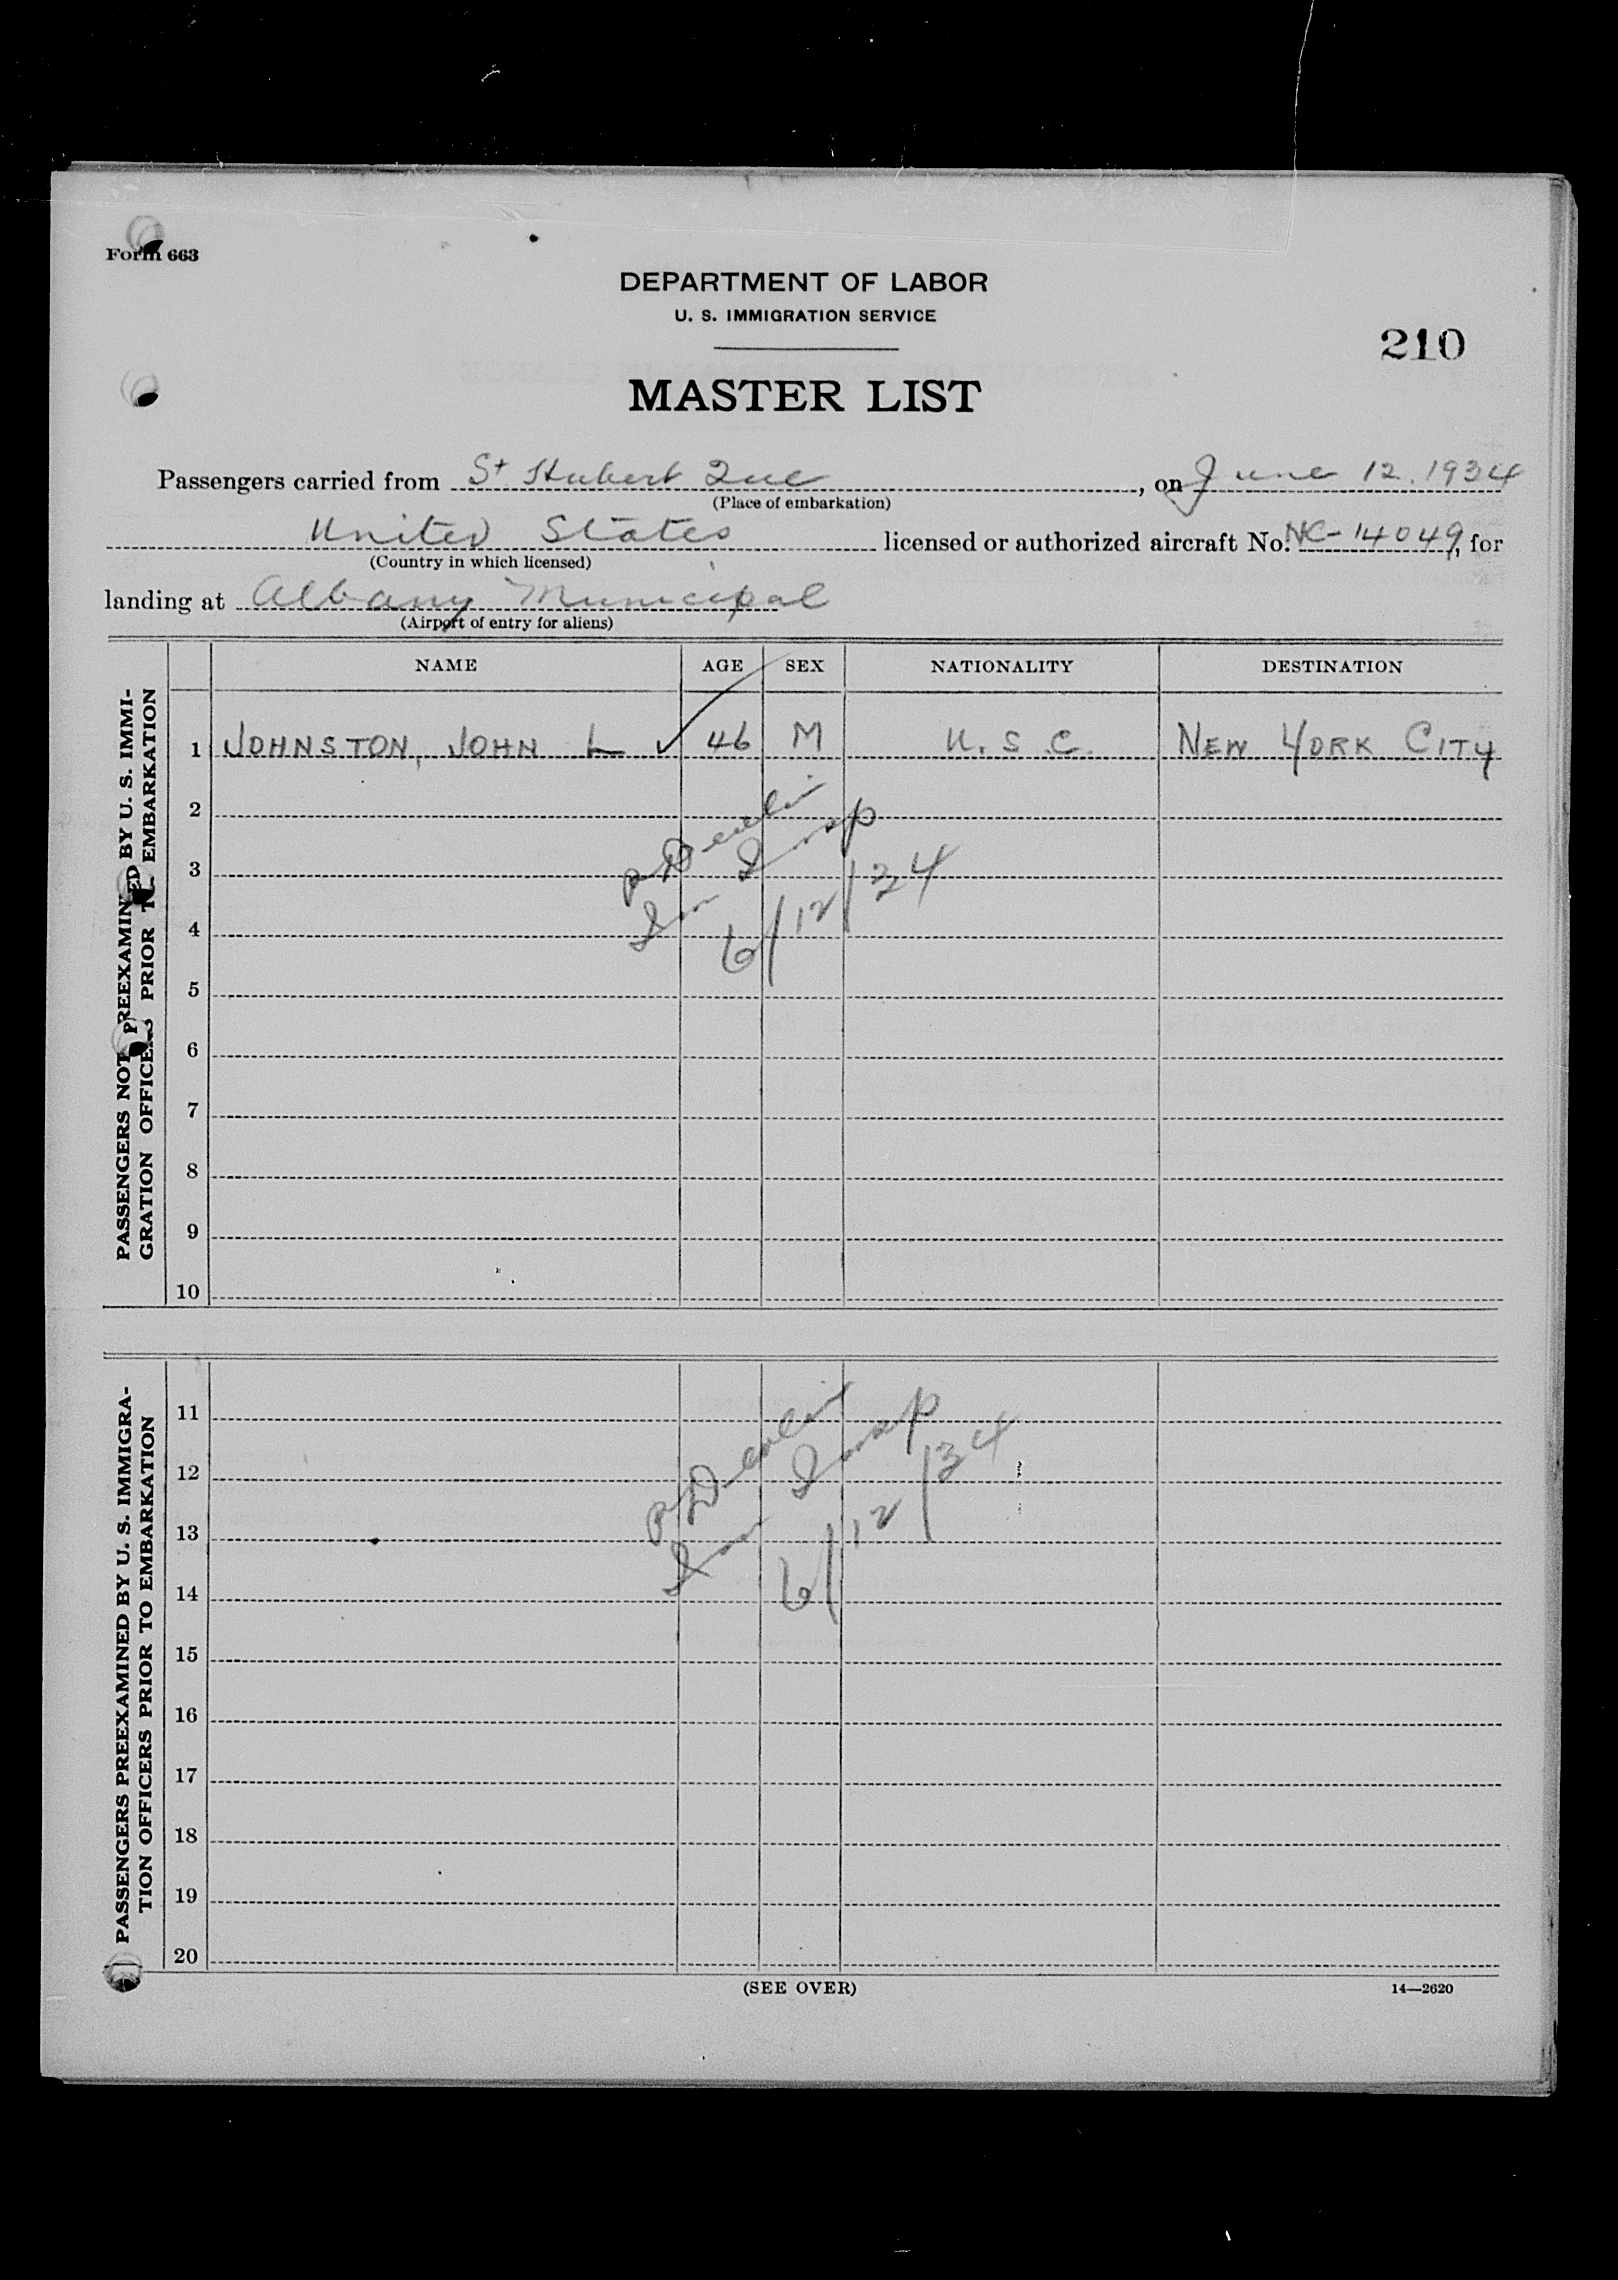 Form 663
DEPARTMENT OF LABOR
U. S. IMMIGRATION SERVICE
210
MASTER LIST
Passengers carried from St Hubert Que, on June 12. 1934
(Place of embarkation)
United States licensed or authorized aircraft No. NC-14049, for
(Country in which licensed)
landing at Albany Municipal
(Airport of entry for aliens)
NAME AGE SEX NATIONALITY DESTINATION
PASSENGERS NOT PREEXAMINED BY U. S. IMMI-
GRATION OFFICERS PRIOR TO EMBARKATION
1 JOHNSTON, JOHN L ✓ 46 M U. S. C. NEW YORK CITY
2
3
4
5
6
7
8
9
10
Imm Insp
6/12/34
PASSENGERS PREEXAMINED BY U. S. IMMIGRA-
TION OFFICERS PRIOR TO EMBARKATION
11
12
13
14
15
16
17
18
19
20
Imm Insp
6/12/34
(SEE OVER)
14—2620